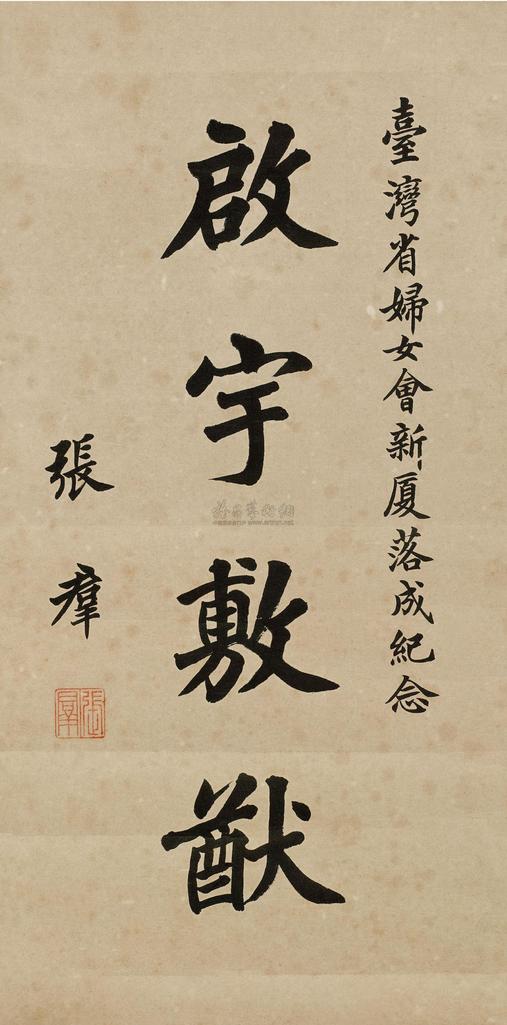 臺灣省婦女會新厦落成紀念
啟宇敷猷
張羣
張羣